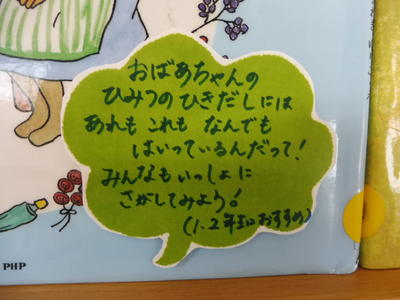 おばあちゃんの
ひみつのひきだしには
あれもこれもなんでも
はいっているんだって!
みんなもいっしょに
さがしてみよう!
(1.2年生におすすめ)
PHP